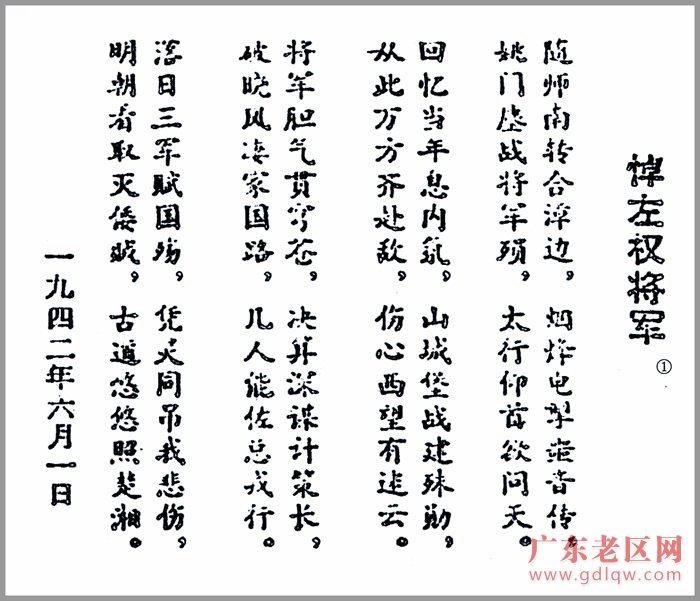 悼左权将军①
随师南转合漳边，烟烽电掣噩音传，
姚门鏖战将军殒，太行仰首欲问天。
回忆当年息内氛，山城堡战建殊勋，
从此万方齐赴敌，伤心西望有迷云。
将军胆气贯穹苍，决算深谋计策长，
破晓风凄家国路，几人能佐总戎行。
落日三军赋国殇，凭同吊我悲伤，
明朝看取灭倭贼。古道悠悠照楚湘。
一九四二年六月一日
广东老区网
www.gdlqw.com